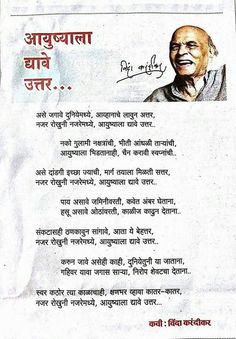 आयुष्याला
द्यावे
उत्तर...
विंदा करंदीकर
असे जगावे दुनियेमध्ये, आव्हानाचे लावुन अत्तर,
नजर रोखुनी नजरेमध्ये, आयुष्याला द्यावे उत्तर..
नको गुलामी नक्षत्रांची, भीती आंधळी ताऱ्यांची,
आयुष्याला भिडतानाही, चैन करावी स्वप्नांची..
असे दांडगी इच्छा ज्याची, मार्ग तयाला मिळती सत्तर,
नजर रोखुनी नजरेमध्ये, आयुष्याला द्यावे उत्तर..
पाय असावे जमिनीवरती, कवेत अंबर घेताना,
हसू असावे ओठांवरती, काळीज काढुन देताना..
संकटासही ठणकावुन सांगावे, आता ये बेहत्तर,
नजर रोखुनी नजरेमध्ये, आयुष्याला द्यावे उत्तर..
करुन जावे असेही काही, दुनियेतुनी या जाताना,
गहिवर यावा जगास साऱ्या, निरोप शेवटचा देताना..
स्वर कठोर त्या काळाचाही, क्षणभर व्हावा कातर-कातर,
नजर रोखुनी नजरेमध्ये, आयुष्याला द्यावे उत्तर..
कवी : विंदा करंदीकर